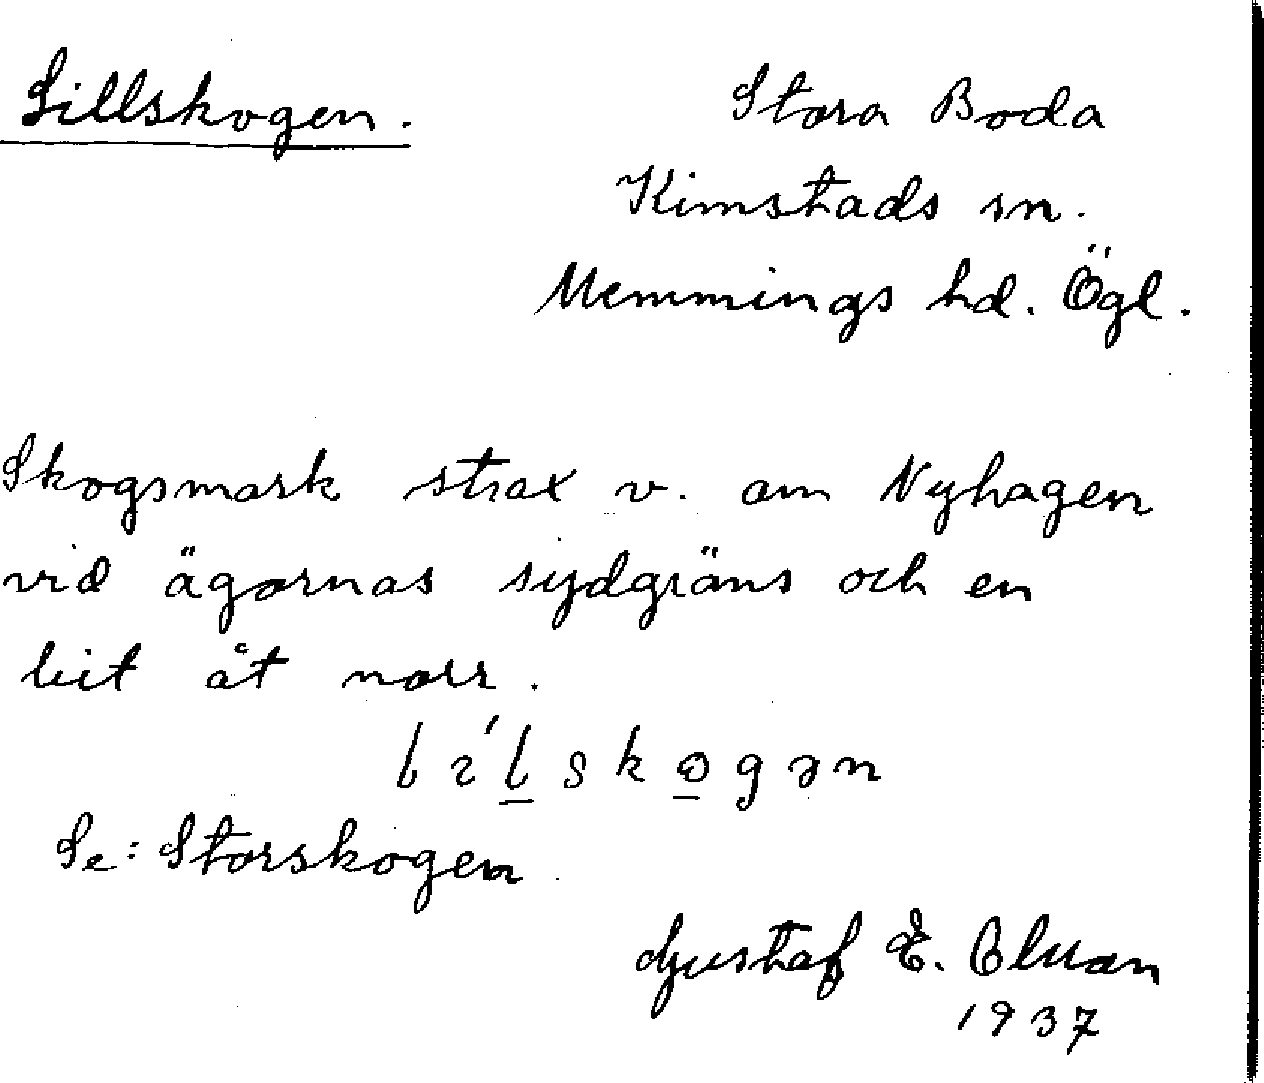 Lillskogen.
Stora Boda
Kimstads sn.
Memmings hd. Ögl.
Skogsmark strax v. om Nyhagen
vid ägornas sydgräns och en
bit åt norr.
lɩ́l̲sko̲gən
Se: Storskogen
Gustaf E.
1937